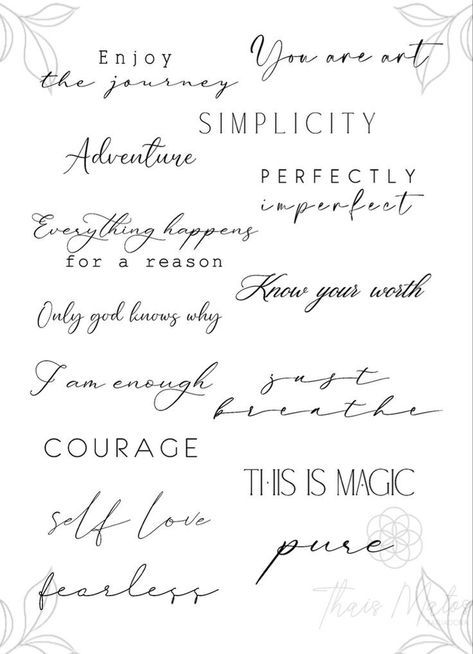 Enjoy
the journey
You are art
SIMPLICITY
Adventure
PERFECTLY
imperfect
Everything happens
for a reason
Know your worth
Only god knows why
I am enough
just
breathe
COURAGE
THIS IS MAGIC
self love
pure
fearless
Thais